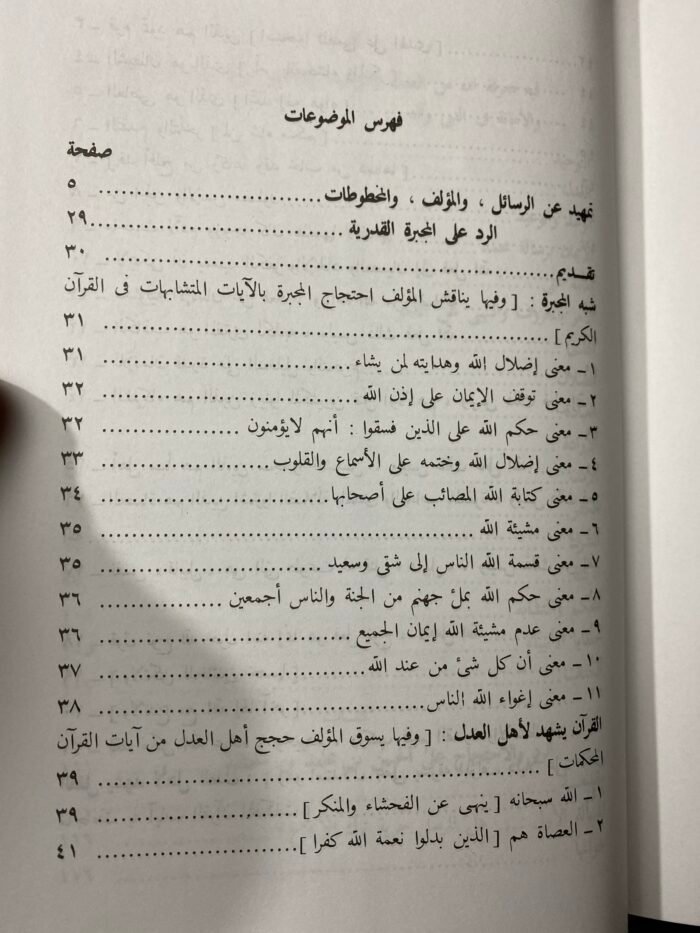 فهرس الموضوعات
صفحة
تمهيد عن الرسائل ، والمؤلف ، والمخطوطات .............................. ٥
الرد على المجبرة القدرية ..............................٢٩
تقديم .............................. ٣٠
شبه المجبرة : [ وفيها يناقش المؤلف احتجاج المجبرة بالآيات المتشابهات فى القرآن
الكريم ] .............................. ٣١
١ ـ معنى إضلال الله وهدايته لمن يشاء .............................. ٣١
٢ ـ معنى توقف الإيمان على إذن الله .............................. ٣٢
٣ ـ معنى حكم الله على الذين فسقوا : أنهم لايؤمنون .................. ٣٢
٤ ـ معنى إضلال الله وختمه على الأسماع والقلوب ...................... ٣٣
٥ ـ معنى كتابة الله المصائب على أصحابها .............................. ٣٤
٦ ـ معنى مشيئة الله .............................. ٣٥
٧ ـ معنى قسمة الله الناس إلى شقى وسعيد .............................. ٣٥
٨ ـ معنى حكم الله بملئ جهنم من الجنة والناس أجمعين .................. ٣٦
٩ ـ معنى عدم مشيئة الله إيمان الجميع .............................. ٣٦
١٠ ـ معنى أن كل شئ من عند الله .............................. ٣٧
١١ ـ معنى إغواء الله الناس .............................. ٣٨
القرآن يشهد لأهل العدل : [ وفيها يسوق المؤلف حجج أهل العدل من آيات القرآن
المحكمات ] .............................. ٣٩
١ ـ الله سبحانه [ ينهى عن الفحشاء والمنكر ] .......................... ٣٩
٢ ـ العصاة هم [ الذين بدلوا نعمة الله كفرا ] .......................... ٤١